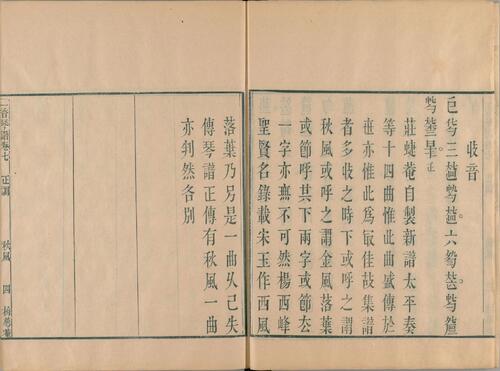 收音
正
莊蜨菴自製新譜太平奏
等十四曲惟此曲盛傳於
世亦惟此爲最佳故集譜
者多收之時下或呼之謂
秋風或呼之謂金風落葉
或節呼其下兩字或節去
一字亦無不可然楊西峰
聖賢名錄載宋玉作西風
落葉乃另是一曲久已失
傳琴譜正傳有秋風一曲
亦判然各別
二香琴譜卷七 正調 秋風 四 梅華菴